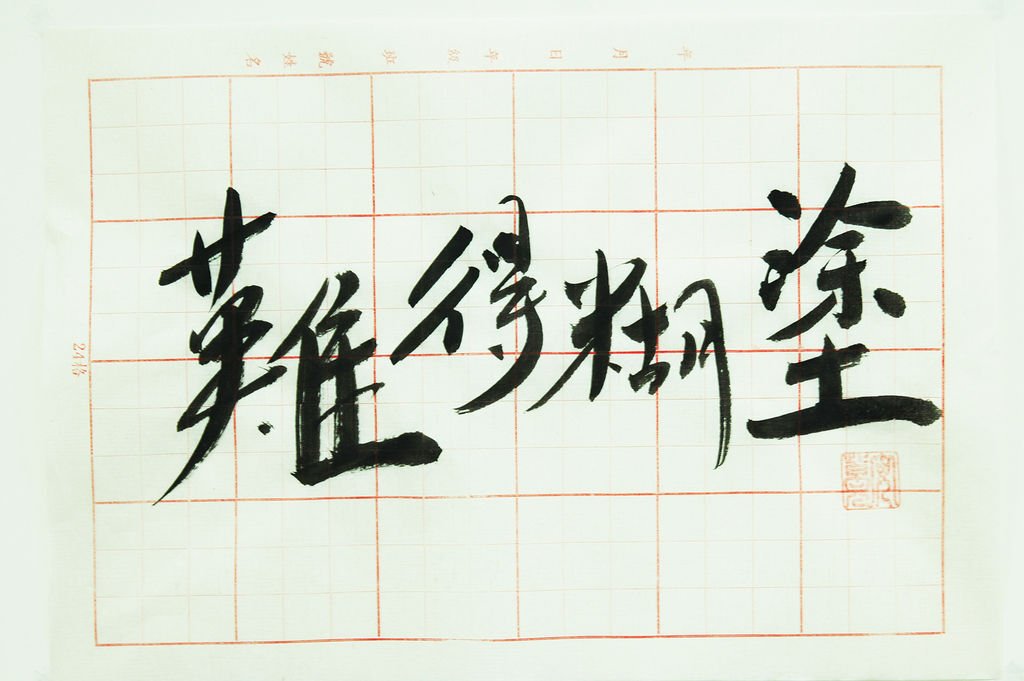 難得糊塗
年 月 日 年級 班 號 姓名
24格